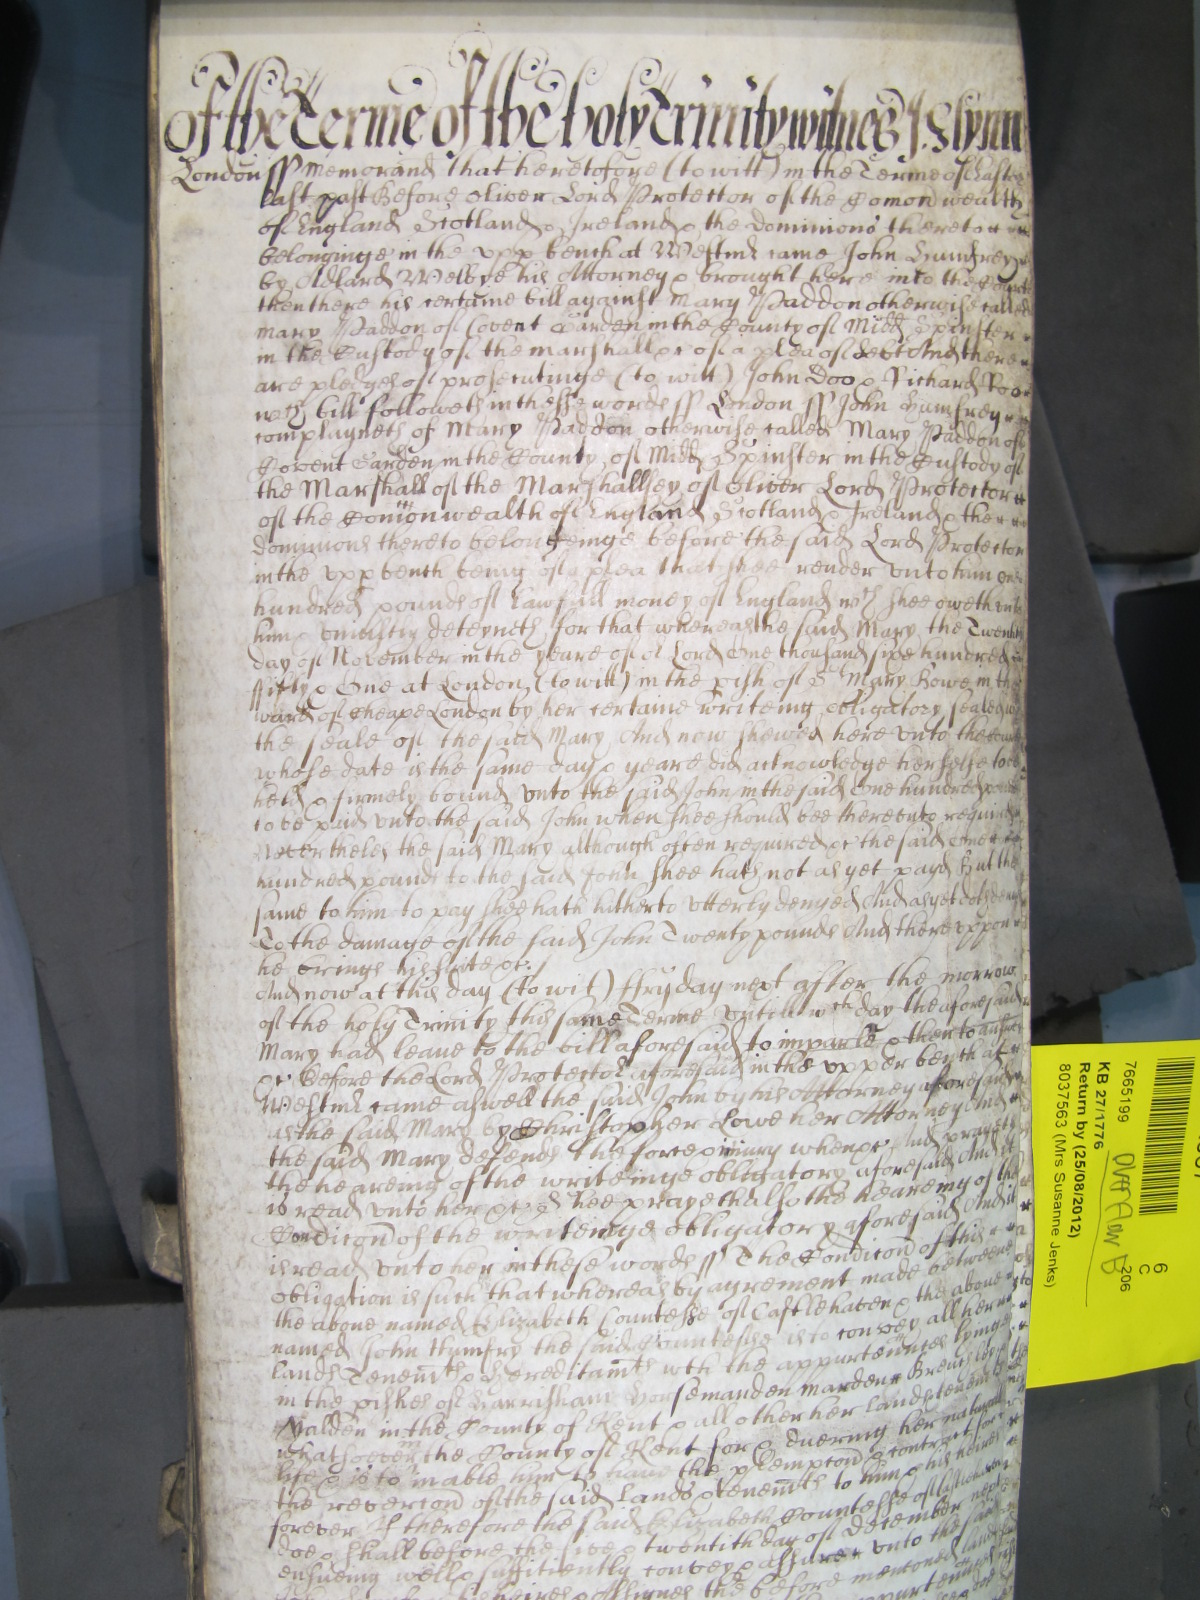 of the Terme of the holy Trinity witnes J. S lynn
London ss Memorand that heretofore (to witt) in the Terme of Easter
last past Before Oliver Lord Protector of the Comon wealth
of England Scotland & Ireland & the dominions thereto
belonginge in the upp bench at Westmr came John Humfrey
by Adlard Welbye his Attorney & brought here into the Court
then there his certaine bill against Mary Paddon otherwise called
Mary Paddon of Covent Garden in the County of Midd Spinster
in the Custody of the marshall &c of a plea of debt And there
are pledges of prosecutinge (to witt) John Doo & Richard Roo
wch bill followeth in these words ss London ss John Humfrey
complayneth of Mary Paddon otherwise called Mary Paddon of
Covent Garden in the County of Midd Spinster in the Custody of
the Marshall of the Marshallsey of Oliver Lord Protector
of the Comonwealth of England Scotland & Ireland & the
dominions thereto belongeinge before the said Lord Protector
in the upp bench being of a plea that shee render unto him one
hundred pounds of lawfull money of England wch shee oweth unto
him & uniustly deteyneth for that whereas the said Mary the Twenty
day of November in the yeare of or Lord One thousand sixe hundred
fifty & One at London (to witt) in the pish of St Mary Bowe in the
ward of Cheape London by her certaine writeing obligatory sealed wth
the seale of the said Mary And now shewed here unto the Court
whose date is the same day & yeare did acknowledge herselfe to be
held & firmely bound unto the said John in the said One hundred pounds
to be paid unto the said John when shee should bee thereunto required
Neverthelesse the said Mary although often required &c the said one
hundred pounds to the said John shee hath not as yet payd But the
same to him to pay shee hath hitherto utterly denyed And as yet doth deny
To the damage of the said John Twenty pounds And thereuppon
he brings his suite &c.
And now at this day (to wit) ffryday next after the morrow
of the holy Trinity this same Terme Untill wch day the aforesaid
Mary had leave to the bill aforesaid to imparle & then to answer
&c Before the Lord Protector aforesaid in the upper bench at
Westmr came aswell the said John by his Attorney aforesaid
as the said Mary by Christopher Lowe her Attorney And
the said Mary defends the force & iniury when &c And prayeth
the heareing of the writeinge obligatory aforesaid And it
is read unto her &c shee prayeth also the heareing of the
Condicon of the writeinge obligatory aforesaid And it
is read unto her in these words ss The Condicon of this
obligation is such that whereas by agreement made betweene
the above named Elizabeth Countesse of Castlehaven & the above
named John Humfry the said Countesse is to convey all her
lands Tenemts & Hereditamts with the appurtennces lyinge
in the pishes of Harrisham Horsemanden Marden Brenchley
Yalden in the County of Kent & all other her lands tenemts
whatsoever in the County of Kent for & dureing her naturall
life & is to inable him to have the p'emption & contract for
the revercon of the said Lands & tenemts to him & his heires
forever If therefore the said Elizabeth Countesse of Castlehaven
doe & shall before the five & twentith day of December next
ensueing well & sufficiently convey & assure unto the said
heires & Assignes the before mentoned lands
7665199
KB 27/1776
Return by (25/08/2012)
8037563 (Mrs Susanne Jenks)
6
C
206